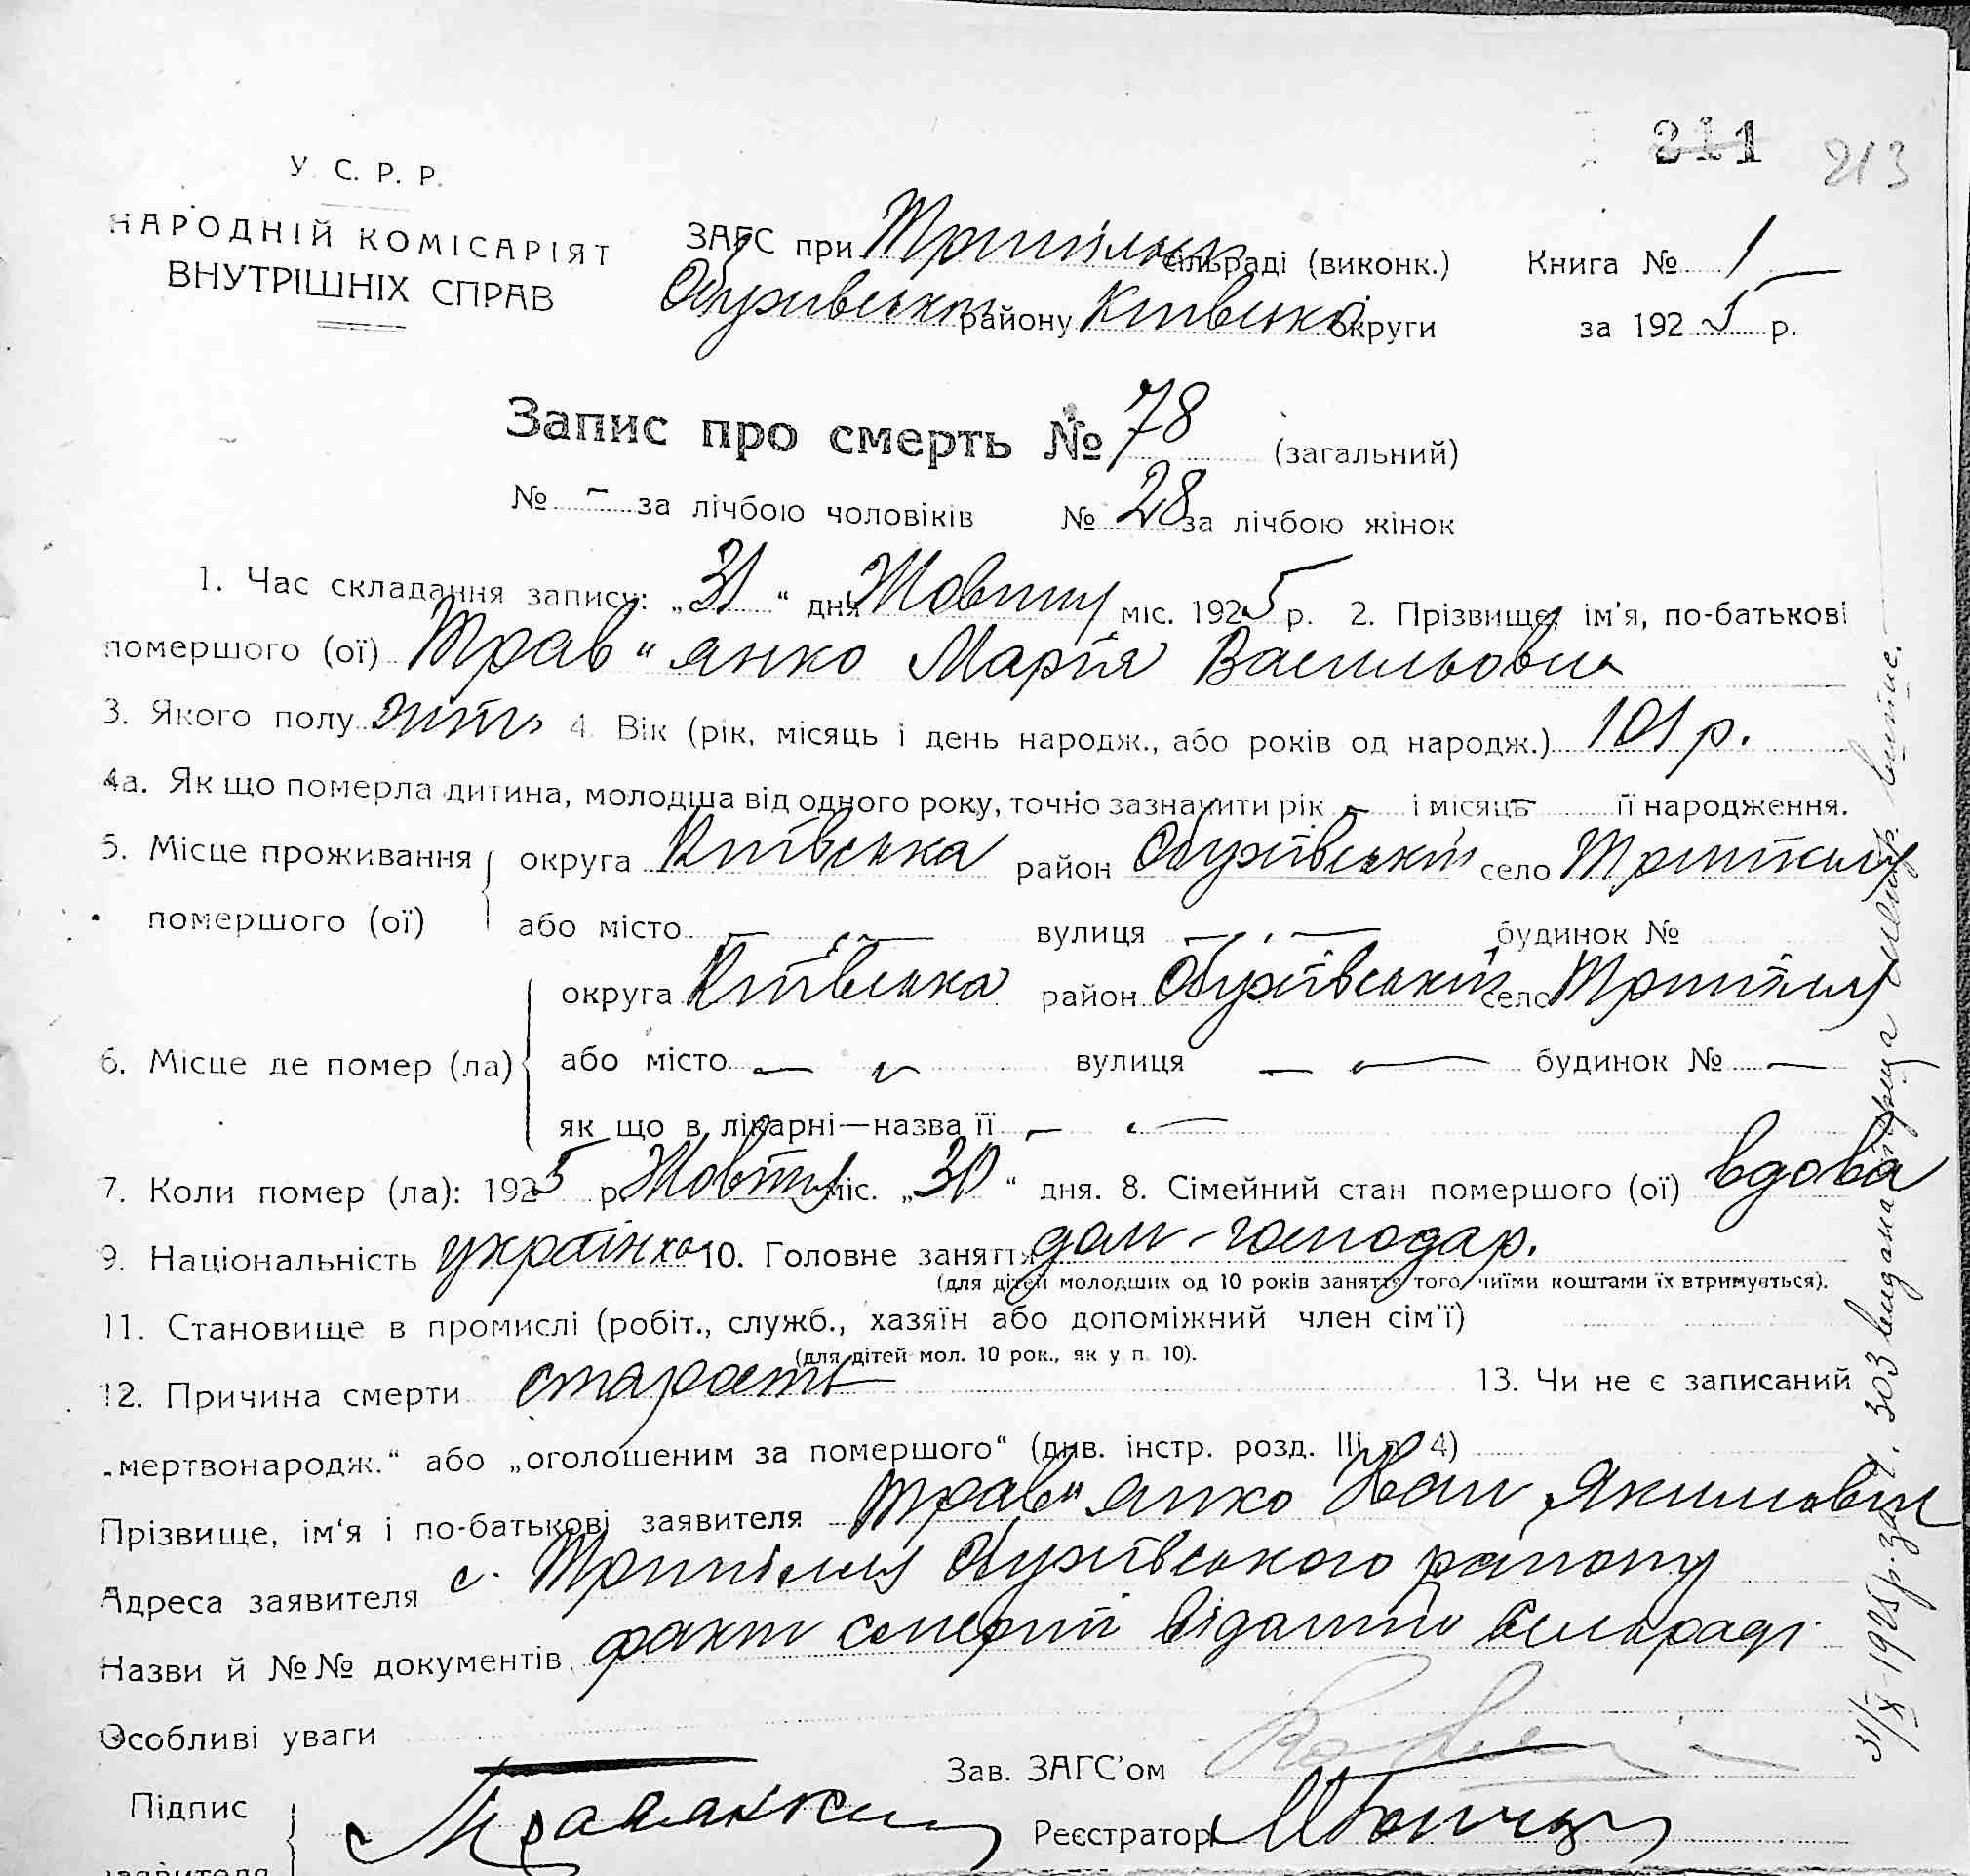 211 213
У. С. Р. Р.
НАРОДНІЙ КОМІСАРІЯТ
ВНУТРІШНІХ СПРАВ
ЗАГС при Трипільск сільраді (виконк.) Книга № 1
Обухівський району Київської округи за 1925 р.
Запис про смерть № 78 (загальний)
№ - за лічбою чоловіків № 28 за лічбою жінок
1. Час складання запису: „31“ дня Жовтня міс. 1925 р. 2. Прізвище, ім'я, по-батькові
помершого (ої) Трав"янко Марія Васильовна
3. Якого полу жін. 4. Вік (рік, місяць і день народж., або років од народж.) 101 р.
4а. Як що померла дитина, молодша від одного року, точно зазначити рік - і місяць - її народження.
5. Місце проживання округа Київська район Обухівський село Трипілля
помершого (ої) або місто — вулиця — будинок №
округа Київська район Обухівський село Трипілля
6. Місце де помер (ла) або місто — вулиця — будинок № —
як що в лікарні—назва її —
7. Коли помер (ла): 1925 р. Жовтня міс. „30“ дня. 8. Сімейний стан помершого (ої) вдова
9. Національність українка 10. Головне заняття дом-господар.
(для дітей молодших од 10 років заняття того, чиїми коштами їх втримується).
11. Становище в промислі (робіт., служб., хазяїн або допоміжний член сім'ї)
(для дітей мол. 10 рок., як у п. 10).
12. Причина смерти старость 13. Чи не є записаний
„мертвонародж.“ або „оголошеним за помершого“ (див. інстр. розд. III п. 4)
Прізвище, ім'я і по-батькові заявителя Трав"янко Іван Якимович
Адреса заявителя с. Трипілля Обухівського району
Назви й №№ документів факт смерти відомий сельраді
Особливі уваги
Зав. ЗАГС'ом
Підпис Травянко Реєстратор
заявителя
31/X-1925 р. за № 303 видана про смер. витис.